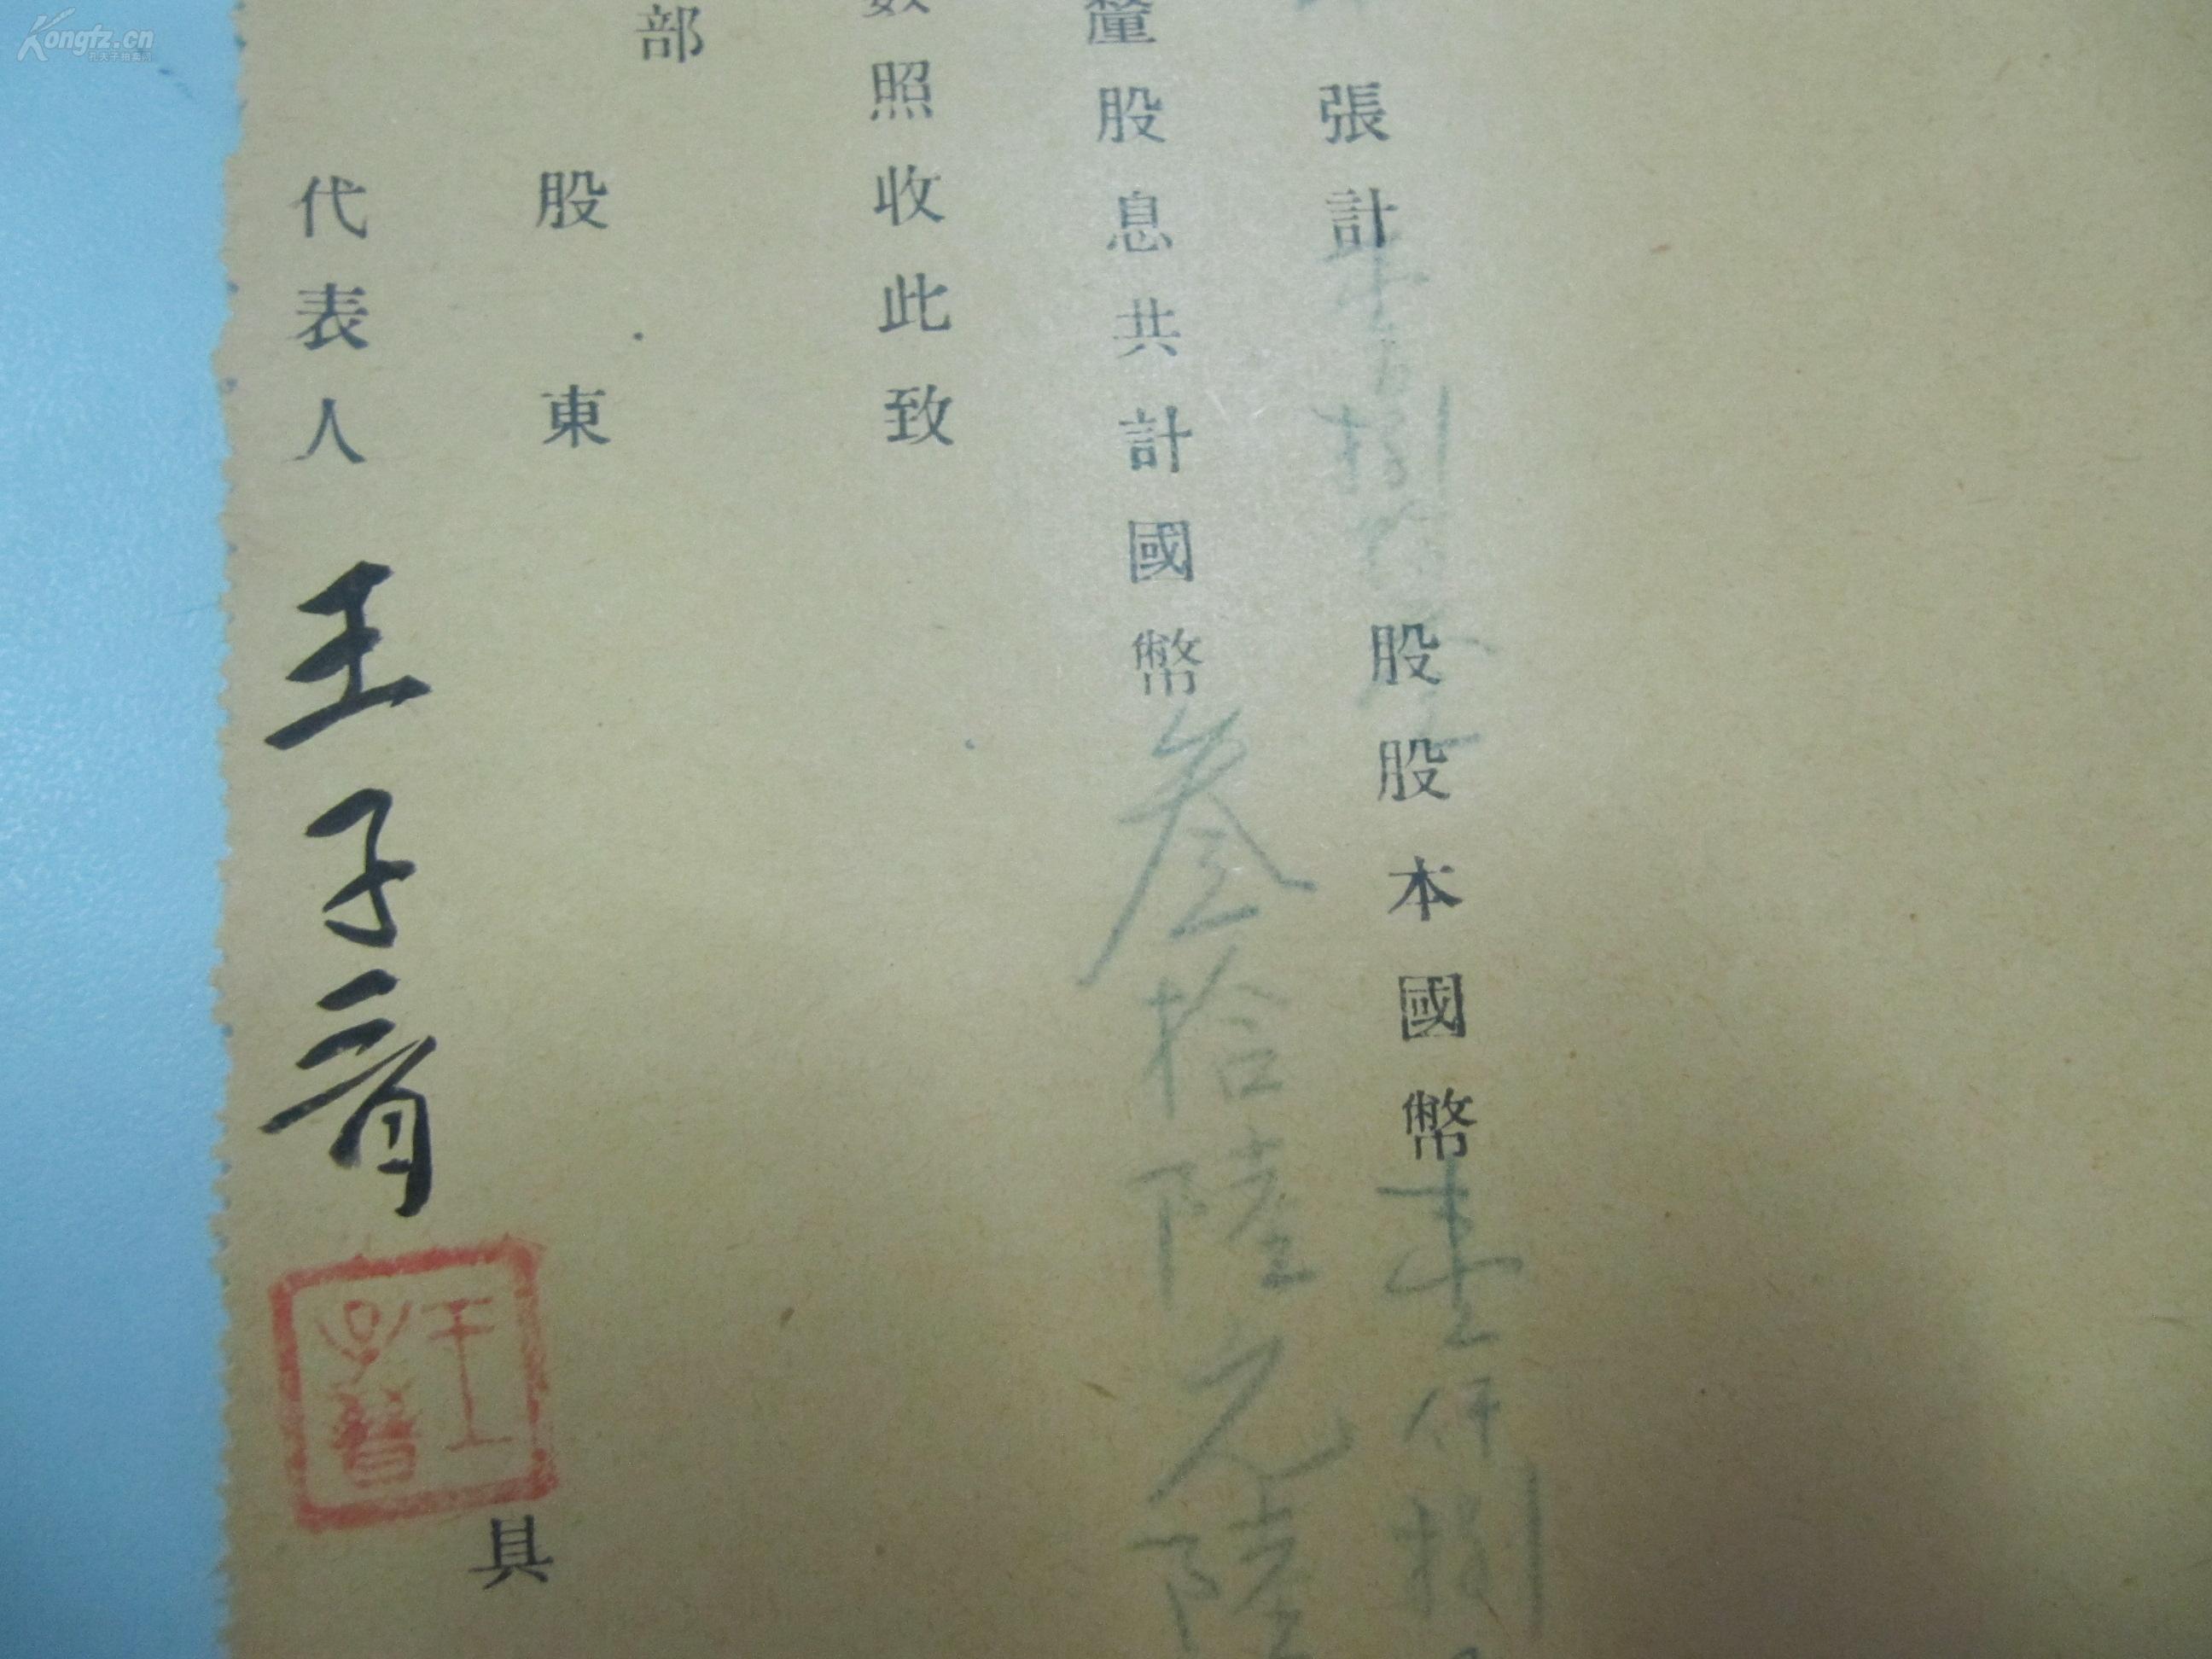 張計壹百捌拾叁股股本國幣壹仟捌
釐股息共計國幣叁拾陸元陸
數照收此致
部
股東
代表人王子晋
王子晉
具
Kongfz.cn